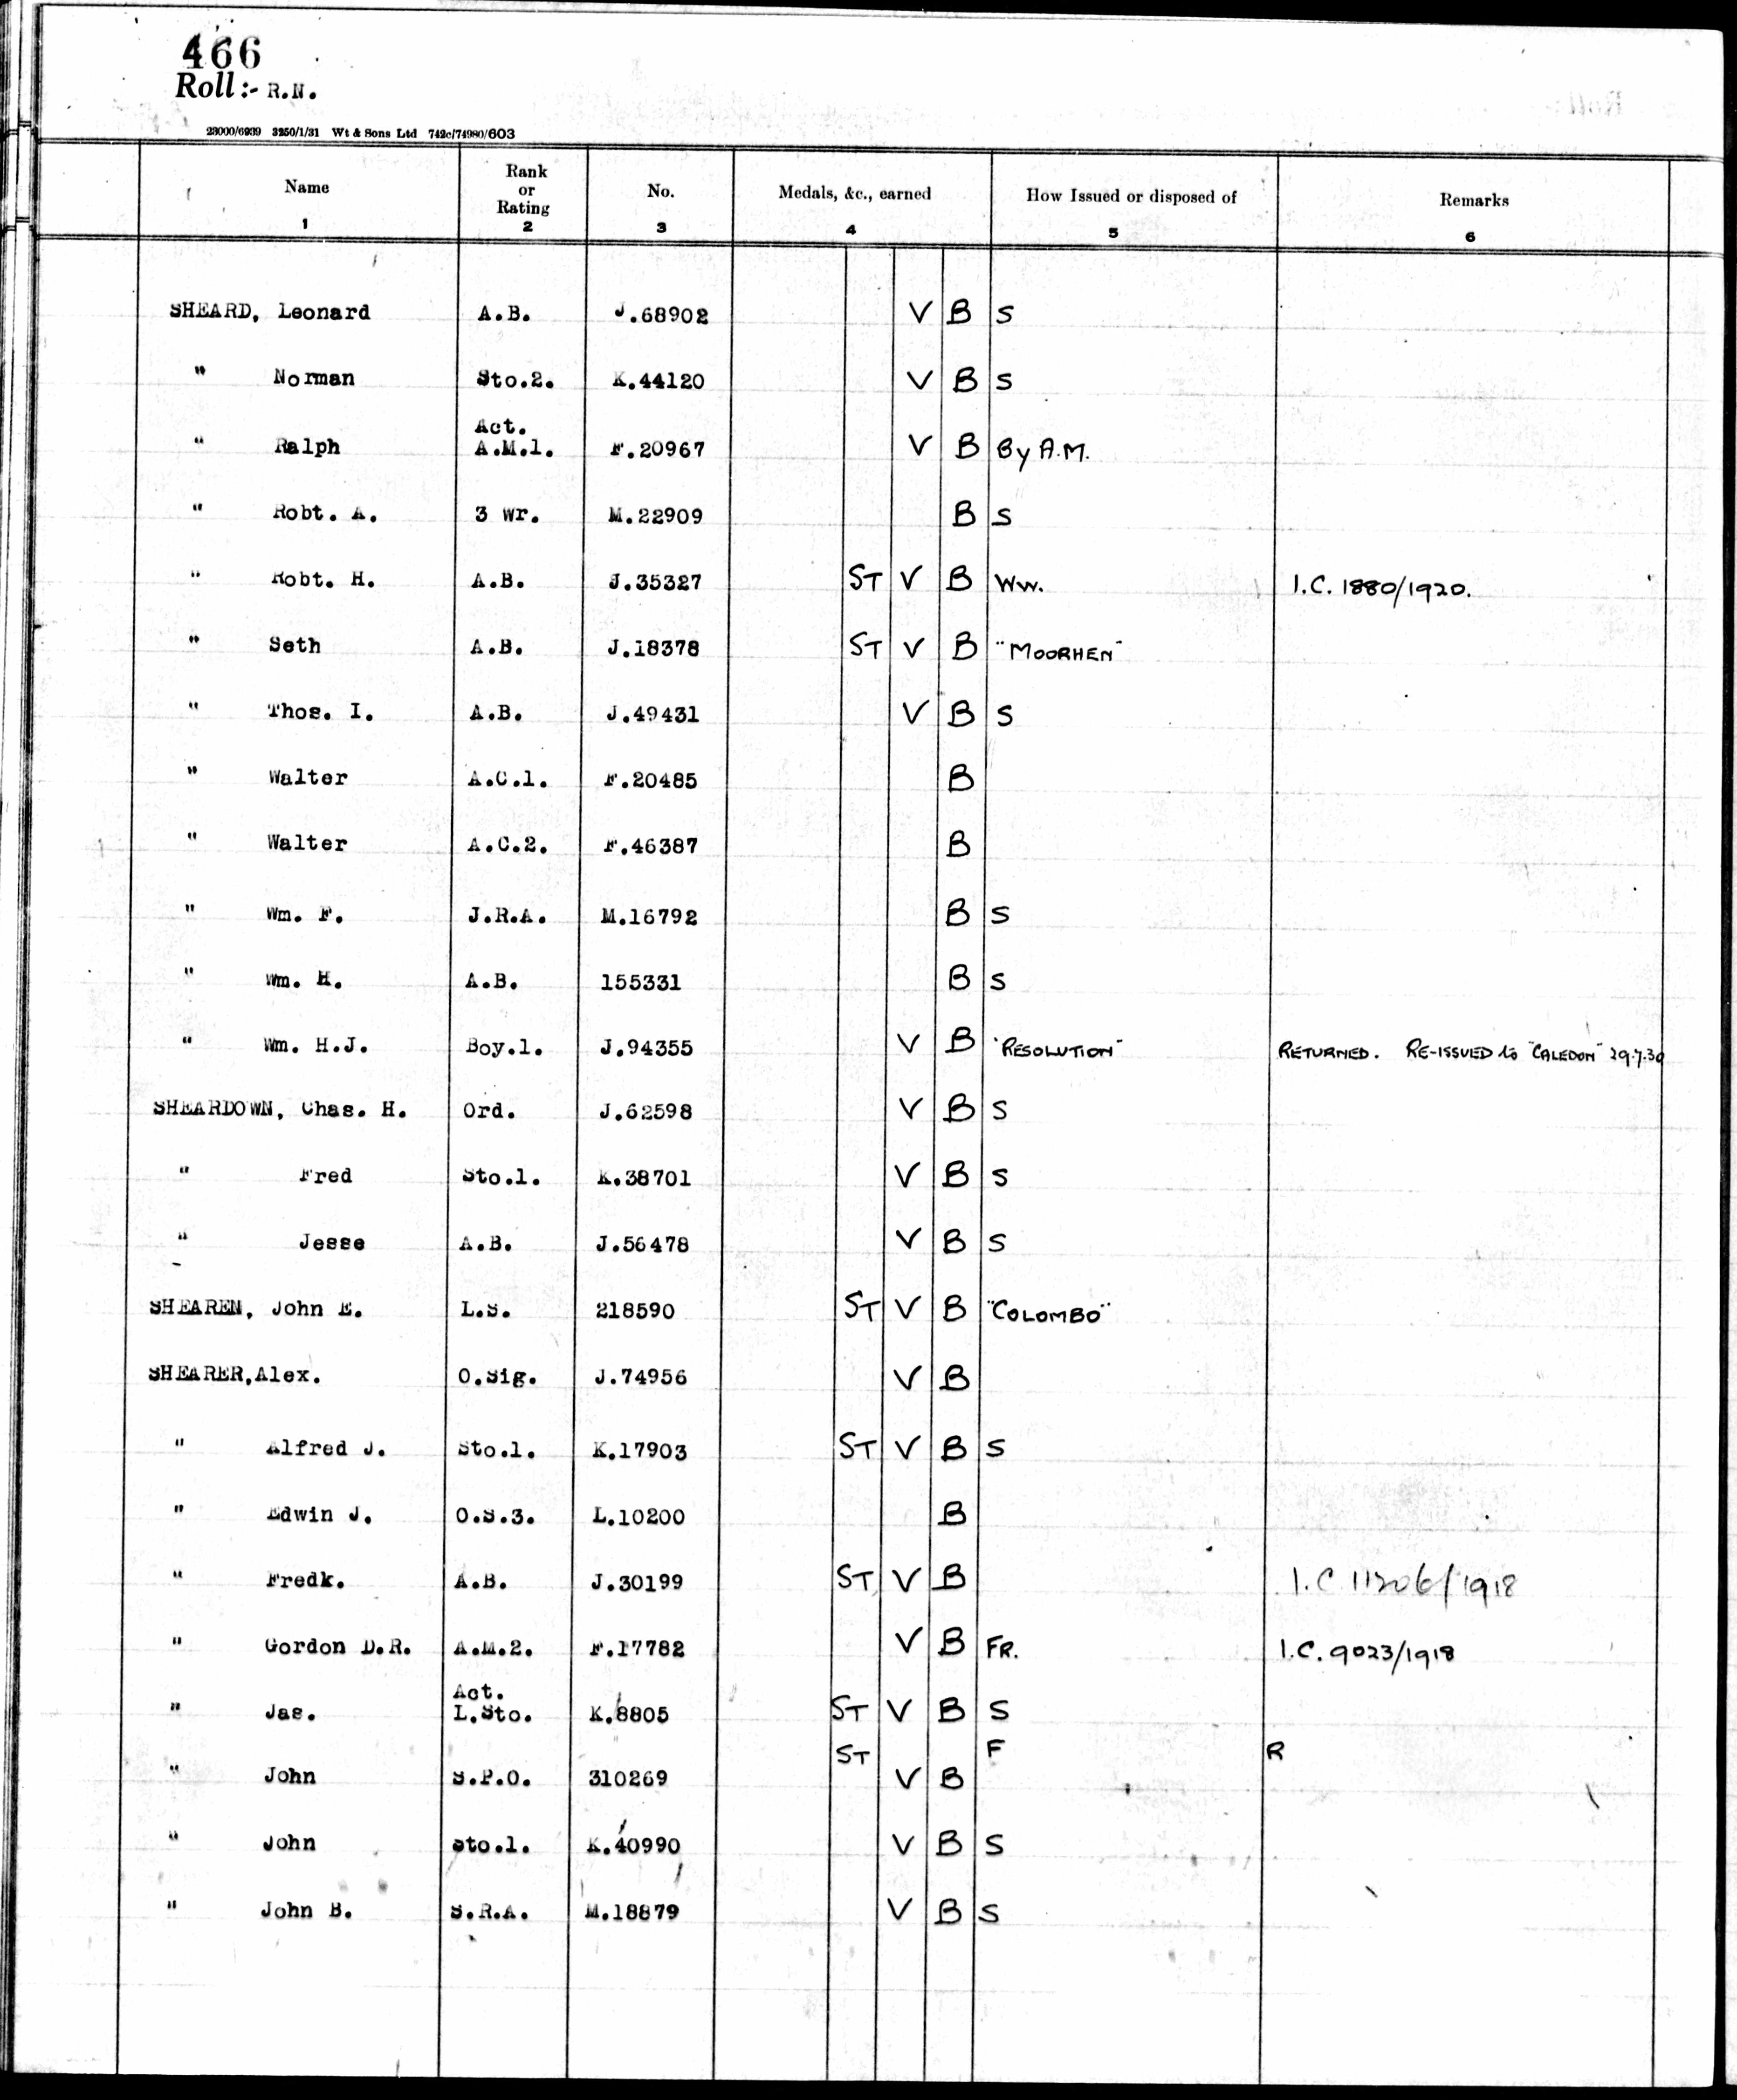 466
Roll:- R.N.
23000/6939 3250/1/31 Wt & Sons Ltd 742c/74980/603
Name Rank or Rating No. Medals, &c., earned How Issued or disposed of Remarks
1 2 3 4 5 6
SHEARD, Leonard A.B. J.68902 V B S
" Norman Sto.2. K.44120 V B S
" Ralph Act. A.M.1. F.20967 V B By A.M.
" Robt. A. 3 Wr. M.22909 B S
" Robt. H. A.B. J.35327 ST V B Ww. I.C. 1880/1920.
" Seth A.B. J.18378 ST V B "MOORHEN"
" Thos. I. A.B. J.49431 V B S
" Walter A.C.1. F.20485 B
" Walter A.C.2. F.46387 B
" Wm. F. J.R.A. M.16792 B S
" Wm. H. A.B. 155331 B S
" Wm. H.J. Boy.1. J.94355 V B "RESOLUTION" RETURNED. RE-ISSUED to "CALEDON" 29.7.30
SHEARDOWN, Chas. H. Ord. J.62598 V B S
" Fred Sto.1. K.38701 V B S
" Jesse A.B. J.56478 V B S
SHEAREN, John E. L.S. 218590 ST V B "COLOMBO"
SHEARER, Alex. O.Sig. J.74956 V B
" Alfred J. Sto.1. K.17903 ST V B S
" Edwin J. O.S.3. L.10200 B
" Fredk. A.B. J.30199 ST V B I.C 11206/1918
" Gordon D.R. A.M.2. F.17782 V B FR. I.C. 9023/1918
" Jas. Act. L.Sto. K.8805 ST V B S
" John S.P.O. 310269 ST V B F R
" John Sto.1. K.40990 V B S
" John B. S.R.A. M.18879 V B S